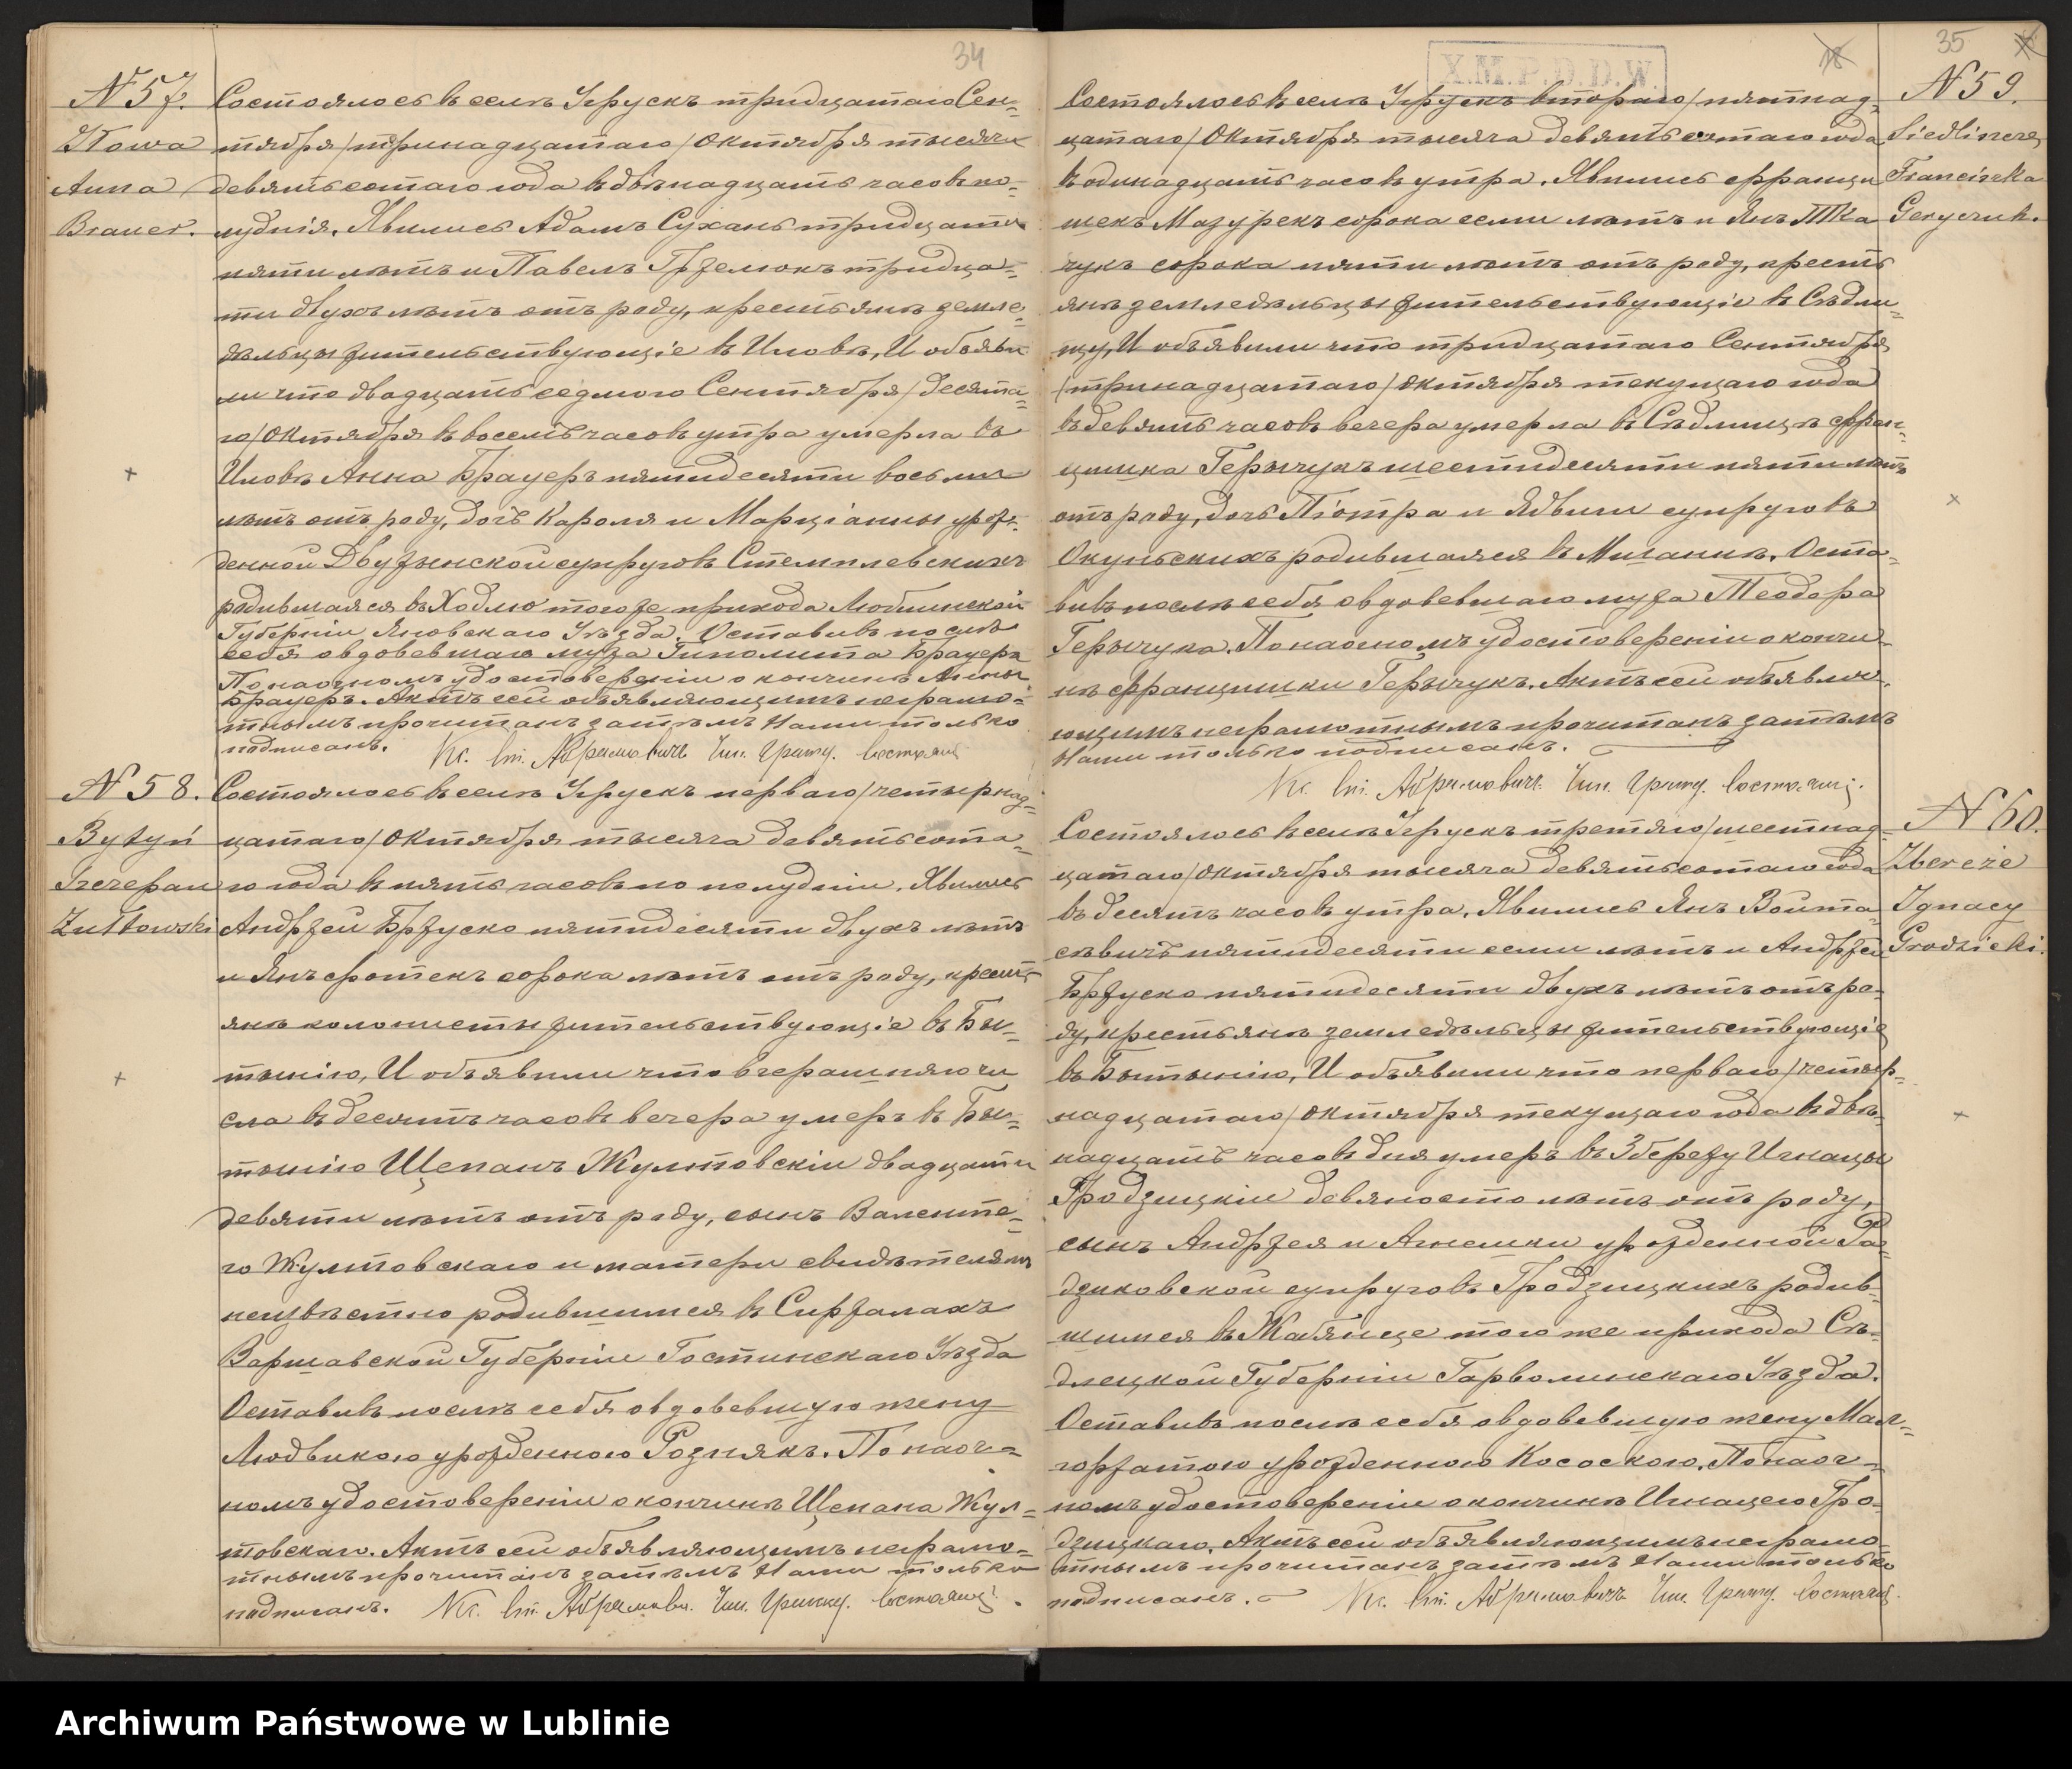 34
N 57.
Iłowa
Anna
Brauer.
Состоялось въ селѣ Угрускъ тридцатаго Сен-
тября /тринадцатаго/ Октября тысяча
девятьсотаго года въ двѣнадцать часовъ по-
лудня. Явились Адамъ Суханъ тридцати
пяти лѣтъ и Павелъ Гржелюкъ тридца-
ти двухъ лѣтъ отъ роду, крестьяне земле-
дѣльцы жительствующіе въ Иловѣ, И объяви-
ли что двадцать седмого Сентября /десята-
го/ Октября въ восемь часовъ утра умерла въ
Иловѣ Анна Брауеръ пятидесяти восьми
лѣтъ отъ роду, дочь Кароля и Марціанны урож-
денной Двужинской супруговъ Стемплевскихъ
родившаяся въ Ходлю того же прихода Люблинской
Губерніи Яновскаго Уѣзда. Оставивъ послѣ
себя овдовевшаго мужа Гиполита Брауера
По наочномъ удостовереніи о кончинѣ Анны
Брауеръ. Актъ сей объявляющимъ неграмо-
тнымъ прочитанъ затѣмъ Нами только
подписанъ. Кс. Ст. Абрамовичъ Чин. Гражд. Состоянія
N 58.
Bytyń
Szczepan
Żułtowski
Состоялось въ селѣ Угрускъ перваго /четырнад-
цатаго/ Октября тысяча девятьсота-
го года въ пять часовъ по полудни. Явились
Андржей Бржуско пятидесяти двухъ лѣтъ
и Янъ Фотекъ сорока лѣтъ отъ роду, кресть
яне колонисты жительствующіе въ Бы-
тыню, И объявили что вчерашняго чи
сла въ десять часовъ вечера умеръ въ Бы-
тыню Щепанъ Жултовскій двадцати
девяти лѣтъ отъ роду, сынъ Валенте-
го Жултовскаго и матери свидѣтелямъ
неизвѣстно родившимся въ Сиржалахъ
Варшавской Губерніи Гостинскаго Уѣзда
Оставивъ послѣ себя овдовевшую жену
Людвикою урожденною Рознякъ. По наоч-
номъ удостовереніи о кончинѣ Щепана Жул-
товскаго. Актъ сей объявляющимъ неграмо-
тнымъ прочитанъ затѣмъ Нами только
подписанъ. Кс. Ст. Абрамови. Чин. Гражд. Состоянія.
35
X.M.P.D.D.W.
N 59.
Siedliszcze
Franciszka
Geryczuk.
Состоялось въ селѣ Угрускъ второго /пятнад-
цатаго/ Октября тысяча девятьсотаго года
въ одинадцать часовъ утра. Явились Францы
шекъ Мазурекъ сорока семи лѣтъ и Янъ Тка
чукъ сорока пяти лѣтъ отъ роду, кресть
яне земледѣльцы жительствующіе въ Сѣдли-
щу, И объявили что тридцатаго Сентября
/тринадцатаго/ Октября текущаго года
въ девять часовъ вечера умерла въ Сѣдлищѣ Фран-
цишка Герычукъ шестидесяти пяти лѣтъ
отъ роду, дочь Піотра и Ядвиги супруговъ
Окуньскихъ родившаяся въ Мшанни. Оста-
вивъ послѣ себя овдовевшаго мужа Теодора
Герычука. По наочномъ удостовереніи о кончи-
нѣ Францишки Герычукъ. Актъ сей объявля-
ющимъ неграмотнымъ прочитанъ затѣмъ
Нами только подписанъ.
Кс. Ст. Абрамовичъ. Чин. Гражд. Состоянія.
N 60.
Zbereże
Ignacy
Grodzicki.
Состоялось въ селѣ Угрускъ третяго /шестнад-
цатаго/ Октября тысяча девятьсотаго года
въ десять часовъ утра. Явились Янъ Войта
сѣвичъ пятидесяти семи лѣтъ и Андржей
Бржуско пятидесяти двухъ лѣтъ отъ ро-
ду, крестьяне земледѣльцы жительствующіе
въ Бытыню, И объявили что перваго /четыр-
надцатаго/ Октября текущаго года въ двѣ-
надцать часовъ дня умеръ въ Збережу Игнацы
Гродзицкій девяносто лѣтъ отъ роду,
сынъ Андржея и Агнешки урожденной Ра-
дзиковской супруговъ Гродзицкихъ родив-
шимся въ Жабянце того же прихода Сѣ-
длецкой Губерніи Гарволинскаго Уѣзда.
Оставивъ послѣ себя овдовевшую жену Мал-
горжатою урожденною Кососкою. По наоч-
номъ удостовереніи о кончинѣ Игнацего Гро-
дзицкаго. Актъ сей объявляющимъ неграмо-
тнымъ прочитанъ затѣмъ Нами только
подписанъ. Кс. Ст. Абрамовичъ Чин. Гражд. Состоянія.
Archiwum Państwowe w Lublinie